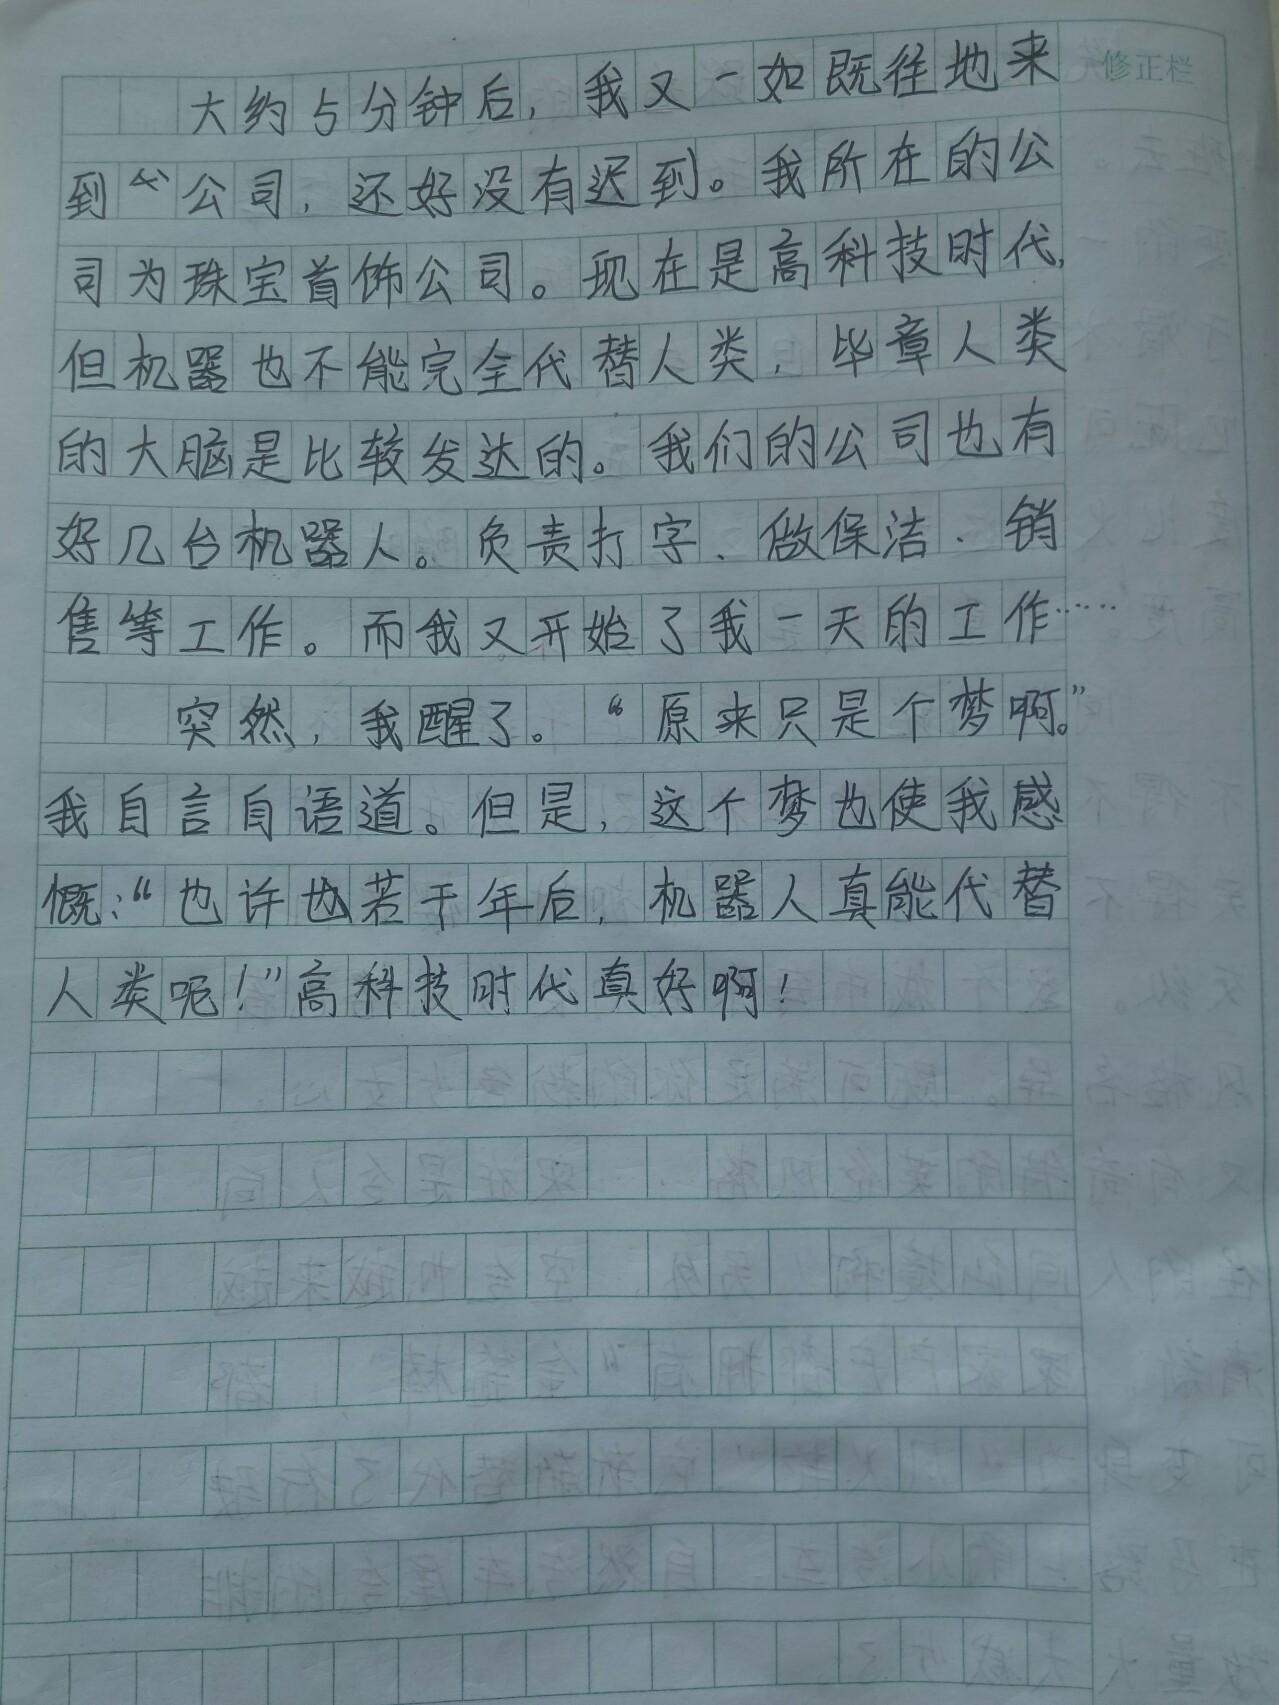 修正栏
大约5分钟后,我又一如既往地来
到公司,还好没有迟到。我所在的公
司为珠宝首饰公司。现在是高科技时代,
但机器也不能完全代替人类,毕章人类
的大脑是比较发达的。我们的公司也有
好几台机器人。负责打字、做保洁、销
售等工作。而我又开始了我一天的工作……
突然,我醒了。“原来只是个梦啊。”
我自言自语道。但是,这个梦也使我感
慨:“也许也若干年后,机器人真能代替
人类呢!”高科技时代真好啊!